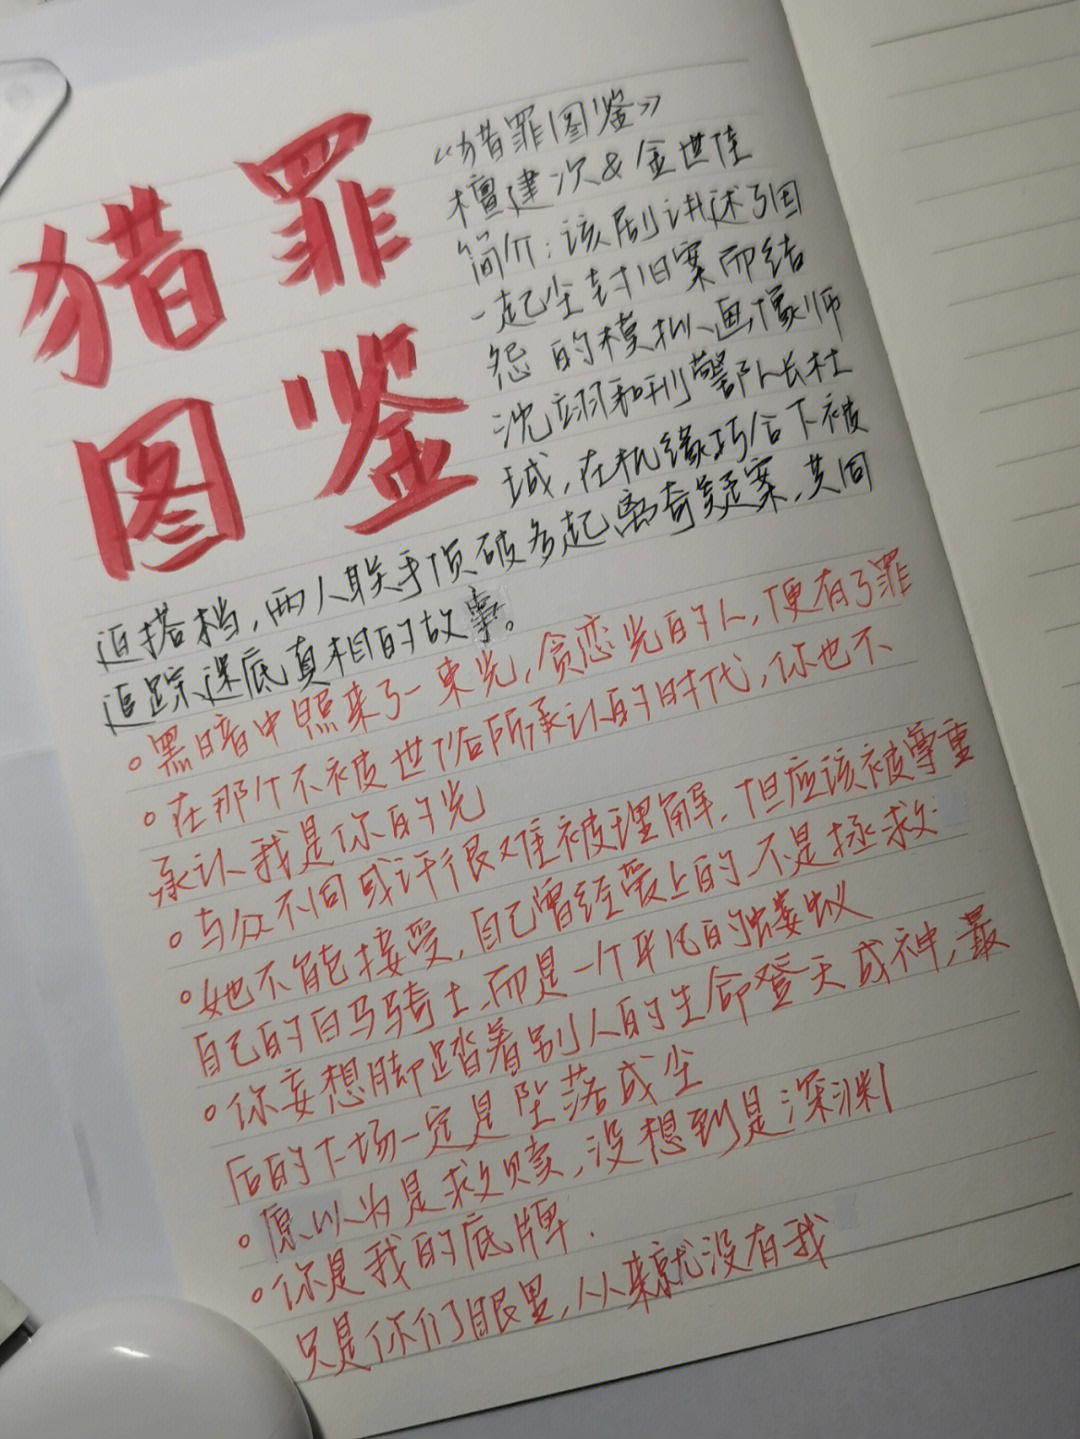 猎罪
图鉴
《猎罪图鉴》
檀建次&金世佳
简介:该剧讲述了因
一起尘封旧案而结
怨的模拟画像师
沈翊和刑警队长杜
城,在机缘巧合下被
迫搭档,两人联手侦破多起离奇疑案,共同
追踪深底真相的故事。
黑暗中照来了一束光,贪恋光的人,便有了罪
在那个不被世俗所承认的时代,你也不
承认我是你的光
与众不同或许很难被理解,但应该被尊重
她不能接受,自己曾经爱上的不是拯救
自己的白马骑士,而是一个平凡的蝼蚁
你妄想脚踏着别人的生命登天成神,最
后的下场一定是坠落成尘
原以为是救赎,没想到是深渊
你是我的底牌.
只是你们眼里,从来就没有我